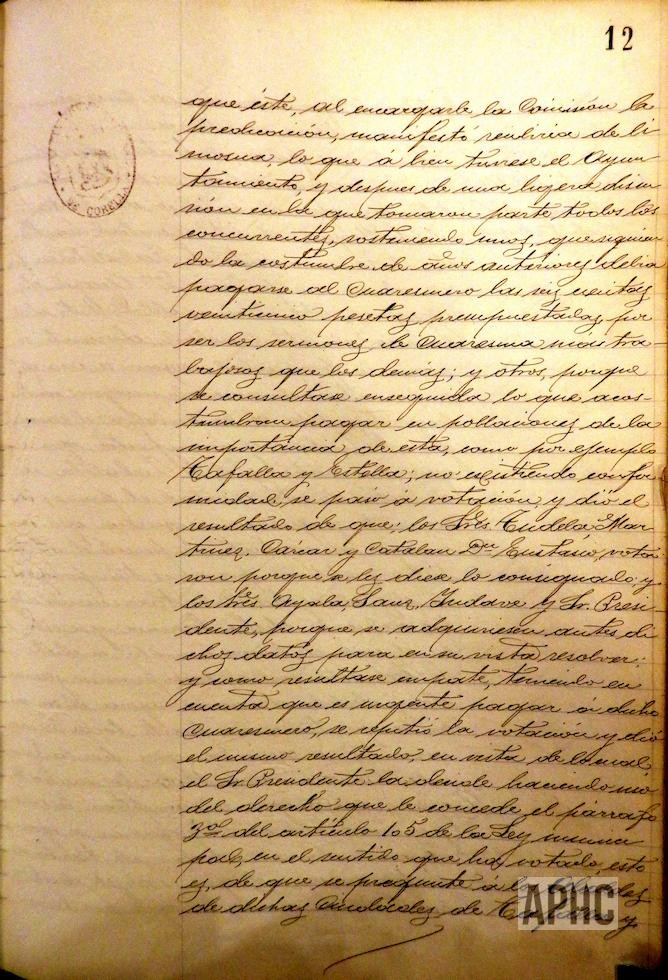 12
DE CORELLA
que éste, al encargarle la Comisión la
predicación, manifestó recibiria de li
mosna lo que á bien tuviese el Ayun-
tamiento, y despues de una ligera discu-
sión en la que tomaron parte todos los
concurrentes, sosteniendo unos, que siguien
do la costumbre de años anteriores debia
pagarse al Cuaresmero las seis cientas
veinticinco pesetas presupuestadas, por
ser los sermones de Cuaresma mas tra-
bajosos que los demás; y otros, porque
se consultase enseguida lo que acos-
tumbran pagar en poblaciones de la
importancia de esta, como por ejemplo
Tafalla y Estella; no existiendo confor
midad, se paso á votación y dió el
resultado de que; los Sres Tudela, Mar-
tinez, Cárcar y Catalan Dn Eustasio, vota-
ron porque se les diese lo consignado; y
los Sres Ayala, Sanz, Yudave y Sr. Presi-
dente, porque se adquiriesen antes di
chos datos para en su vista resolver;
y como resultase empate, teniendo en
cuenta que es urgente pagar á dicho
Cuaresmero, se repitió la votación y dió
el mismo resultado, en vista de lo cual
el Sr. Presidente la decide haciendo uso
del derecho que le concede el párrafo
3º del artículo 105 de la Ley munici
pal, en el sentido que ha votado, esto
es, de que se pregunte á los
de dichas Ciudades de Tafalla y
APHC